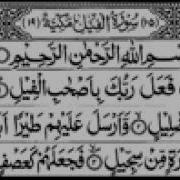 (١٠٥) سُوْرَةُ الْفِيْلِ مَكِّيَّةٌ (١٩)
سْمِ اللّٰهِ الرَّحْمٰنِ الرَّحِيْمِ
فَعَلَ رَبُّكَ بِاَصْحٰبِ الْفِيْلِ
لِيْلٍ وَّاَرْسَلَ عَلَيْهِمْ طَيْرًا
رَةٍ مِّنْ سِجِّيْلٍ فَجَعَلَهُمْ كَعَصْفٍ